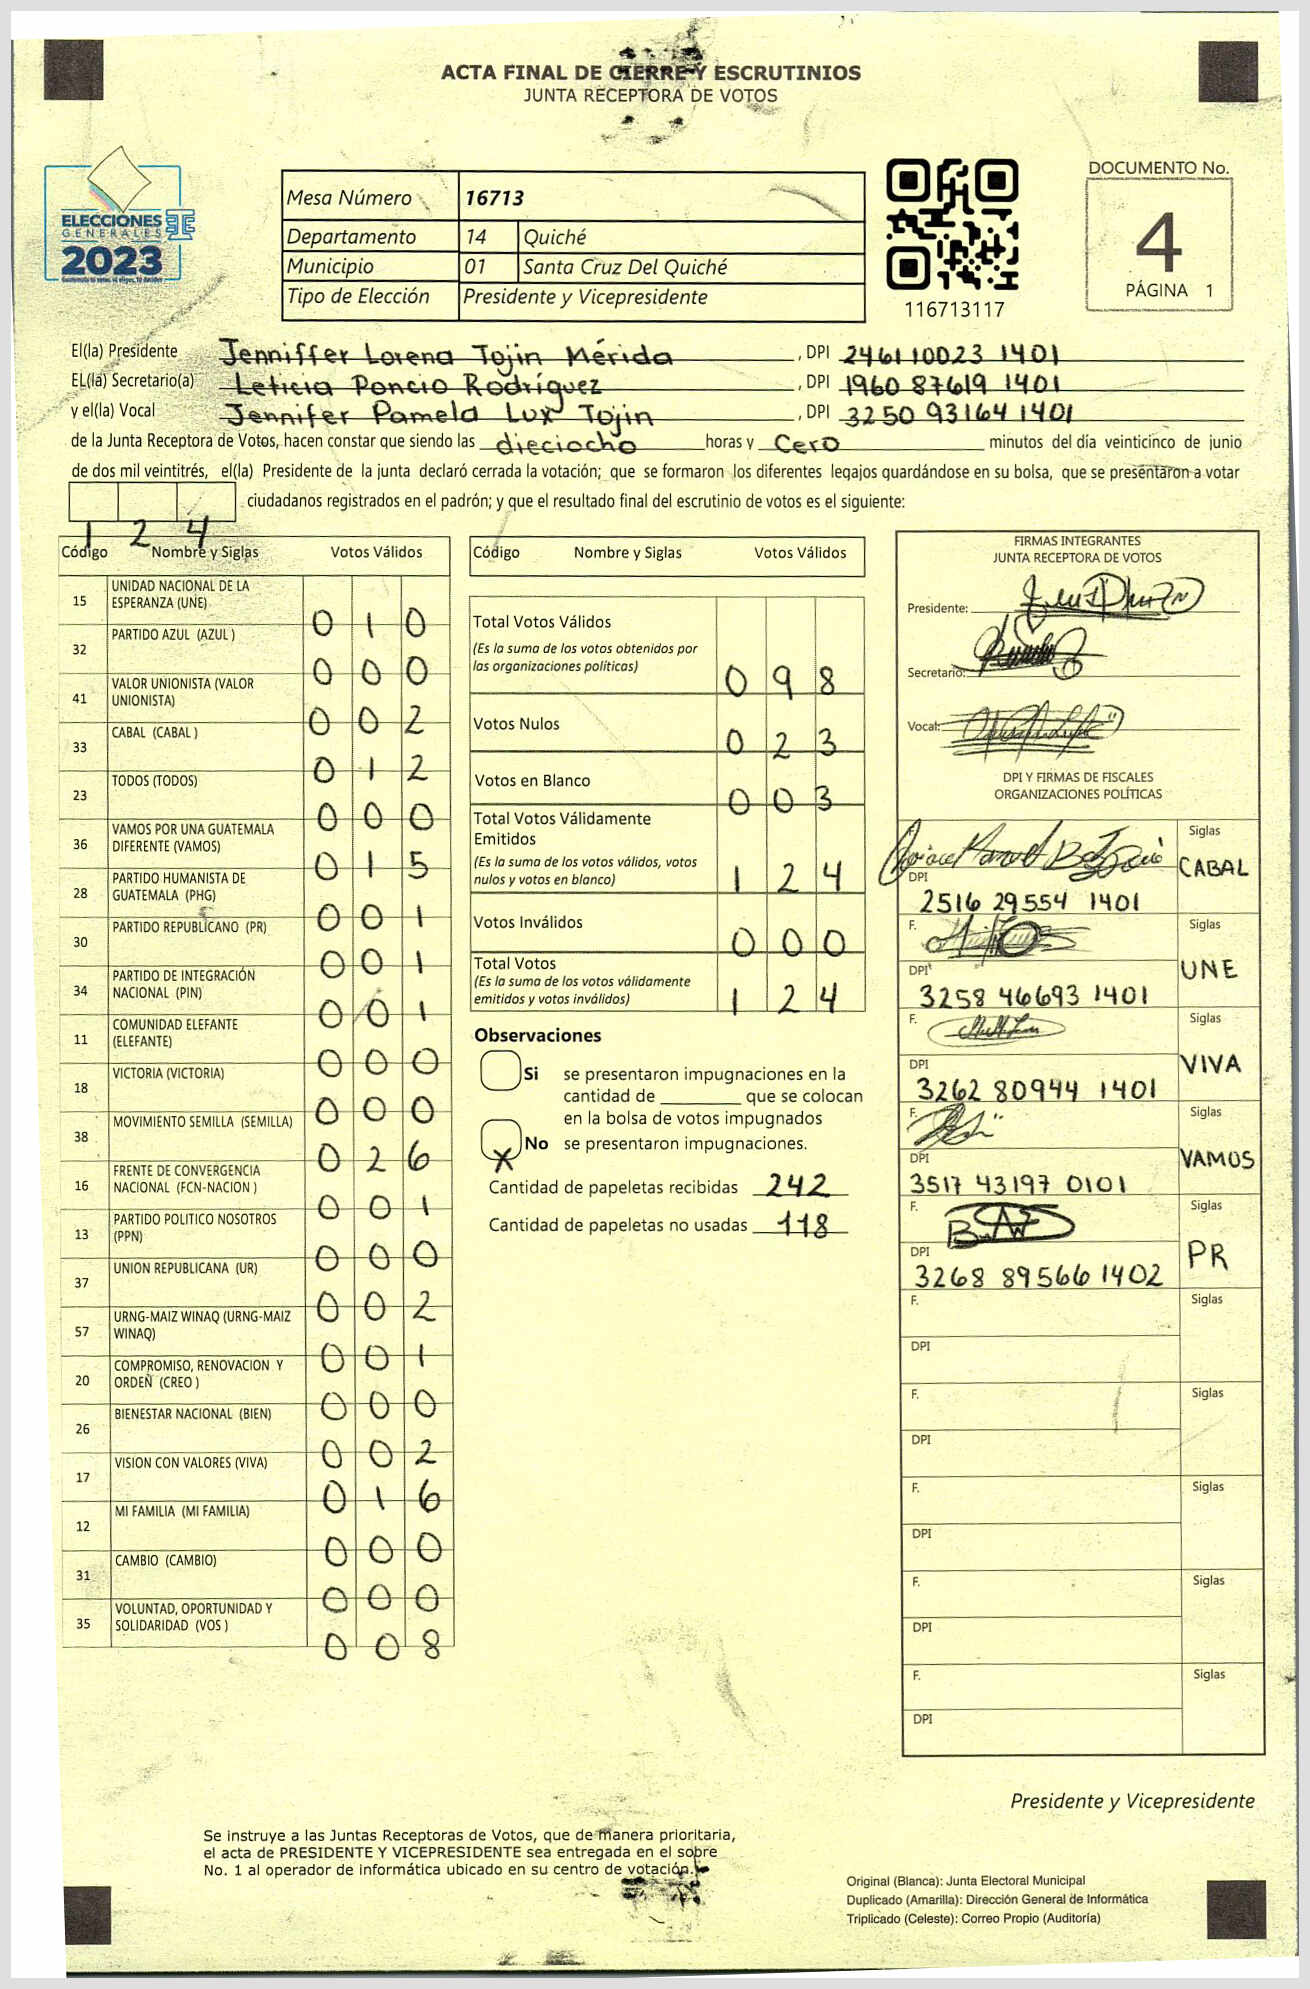 ACTA FINAL DE CIERRE Y ESCRUTINIOS
JUNTA RECEPTORA DE VOTOS
ELECCIONES
GENERALES
2023
Mesa Número 16713
Departamento 14 Quiché
Municipio 01 Santa Cruz Del Quiché
Tipo de Elección Presidente y Vicepresidente
116713117
DOCUMENTO No.
4
PÁGINA 1
El(la) Presidente Jenniffer Lorena Tojin Mérida , DPI 2461 10023 1401
EL(la) Secretario(a) Leticia Poncio Rodríguez , DPI 1960 87619 1401
y el(la) Vocal Jennifer Pamela Lux Tojin , DPI 3250 93164 1401
de la Junta Receptora de Votos, hacen constar que siendo las dieciocho horas y Cero minutos del día veinticinco de junio
de dos mil veintitrés, el(la) Presidente de la junta declaró cerrada la votación; que se formaron los diferentes legajos guardándose en su bolsa, que se presentaron a votar
1 2 4 ciudadanos registrados en el padrón; y que el resultado final del escrutinio de votos es el siguiente:
Código Nombre y Siglas Votos Válidos
15 UNIDAD NACIONAL DE LA
ESPERANZA (UNE) 0 1 0
32 PARTIDO AZUL (AZUL ) 0 0 0
41 VALOR UNIONISTA (VALOR
UNIONISTA) 0 0 2
33 CABAL (CABAL ) 0 1 2
23 TODOS (TODOS) 0 0 0
36 VAMOS POR UNA GUATEMALA
DIFERENTE (VAMOS) 0 1 5
28 PARTIDO HUMANISTA DE
GUATEMALA (PHG) 0 0 1
30 PARTIDO REPUBLICANO (PR) 0 0 1
34 PARTIDO DE INTEGRACIÓN
NACIONAL (PIN) 0 0 1
11 COMUNIDAD ELEFANTE
(ELEFANTE) 0 0 0
18 VICTORIA (VICTORIA) 0 0 0
38 MOVIMIENTO SEMILLA (SEMILLA) 0 2 6
16 FRENTE DE CONVERGENCIA
NACIONAL (FCN-NACION ) 0 0 1
13 PARTIDO POLITICO NOSOTROS
(PPN) 0 0 0
37 UNION REPUBLICANA (UR) 0 0 2
57 URNG-MAIZ WINAQ (URNG-MAIZ
WINAQ) 0 0 1
20 COMPROMISO, RENOVACION Y
ORDEN (CREO ) 0 0 0
26 BIENESTAR NACIONAL (BIEN) 0 0 2
17 VISION CON VALORES (VIVA) 0 1 6
12 MI FAMILIA (MI FAMILIA) 0 0 0
31 CAMBIO (CAMBIO) 0 0 0
35 VOLUNTAD, OPORTUNIDAD Y
SOLIDARIDAD (VOS ) 0 0 8
Código Nombre y Siglas Votos Válidos
Total Votos Válidos
(Es la suma de los votos obtenidos por
las organizaciones políticas) 0 9 8
Votos Nulos 0 2 3
Votos en Blanco 0 0 3
Total Votos Válidamente
Emitidos
(Es la suma de los votos válidos, votos
nulos y votos en blanco) 1 2 4
Votos Inválidos 0 0 0
Total Votos
(Es la suma de los votos válidamente
emitidos y votos inválidos) 1 2 4
Observaciones
Si se presentaron impugnaciones en la
cantidad de ________ que se colocan
en la bolsa de votos impugnados
X No se presentaron impugnaciones.
Cantidad de papeletas recibidas 242
Cantidad de papeletas no usadas 118
FIRMAS INTEGRANTES
JUNTA RECEPTORA DE VOTOS
Presidente:
Secretario:
Vocal:
DPI Y FIRMAS DE FISCALES
ORGANIZACIONES POLÍTICAS
Siglas
CABAL
DPI
2516 29554 1401
F. Siglas
UNE
DPI
3258 46693 1401
F. Siglas
VIVA
DPI
3262 80944 1401
F. Siglas
VAMOS
DPI
3517 43197 0101
F. Siglas
PR
DPI
3268 89566 1402
F. Siglas
DPI
F. Siglas
DPI
F. Siglas
DPI
F. Siglas
DPI
F. Siglas
DPI
Presidente y Vicepresidente
Se instruye a las Juntas Receptoras de Votos, que de manera prioritaria,
el acta de PRESIDENTE Y VICEPRESIDENTE sea entregada en el sobre
No. 1 al operador de informática ubicado en su centro de votación.
Original (Blanca): Junta Electoral Municipal
Duplicado (Amarilla): Dirección General de Informática
Triplicado (Celeste): Correo Propio (Auditoría)